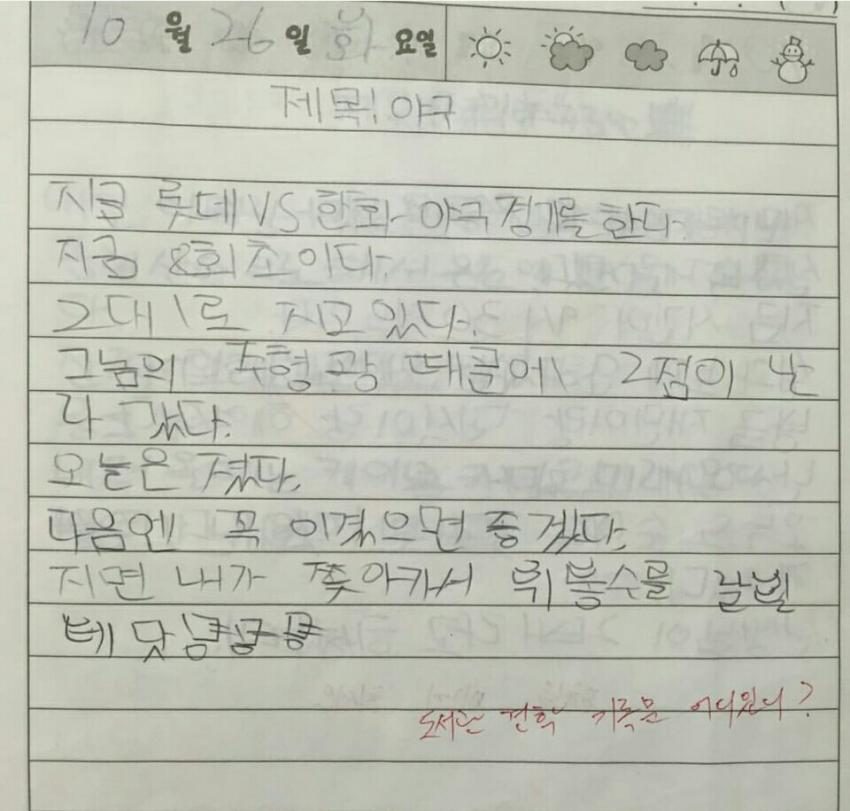 10 월 26 일 화 요일
제목! 야구
지금 롯데VS한화 야구경기를 한다.
지금 8회초이다.
2대1로 지고 있다.
그놈의 형광 때문에 2점이 난
라 갔다.
오늘은 졌다.
다음엔 꼭 이겼으면 좋겠다.
지면 내가 쫓아가서 뤼 불수를 날빌
테 닷
도서관 견학 기록문 어디있니?